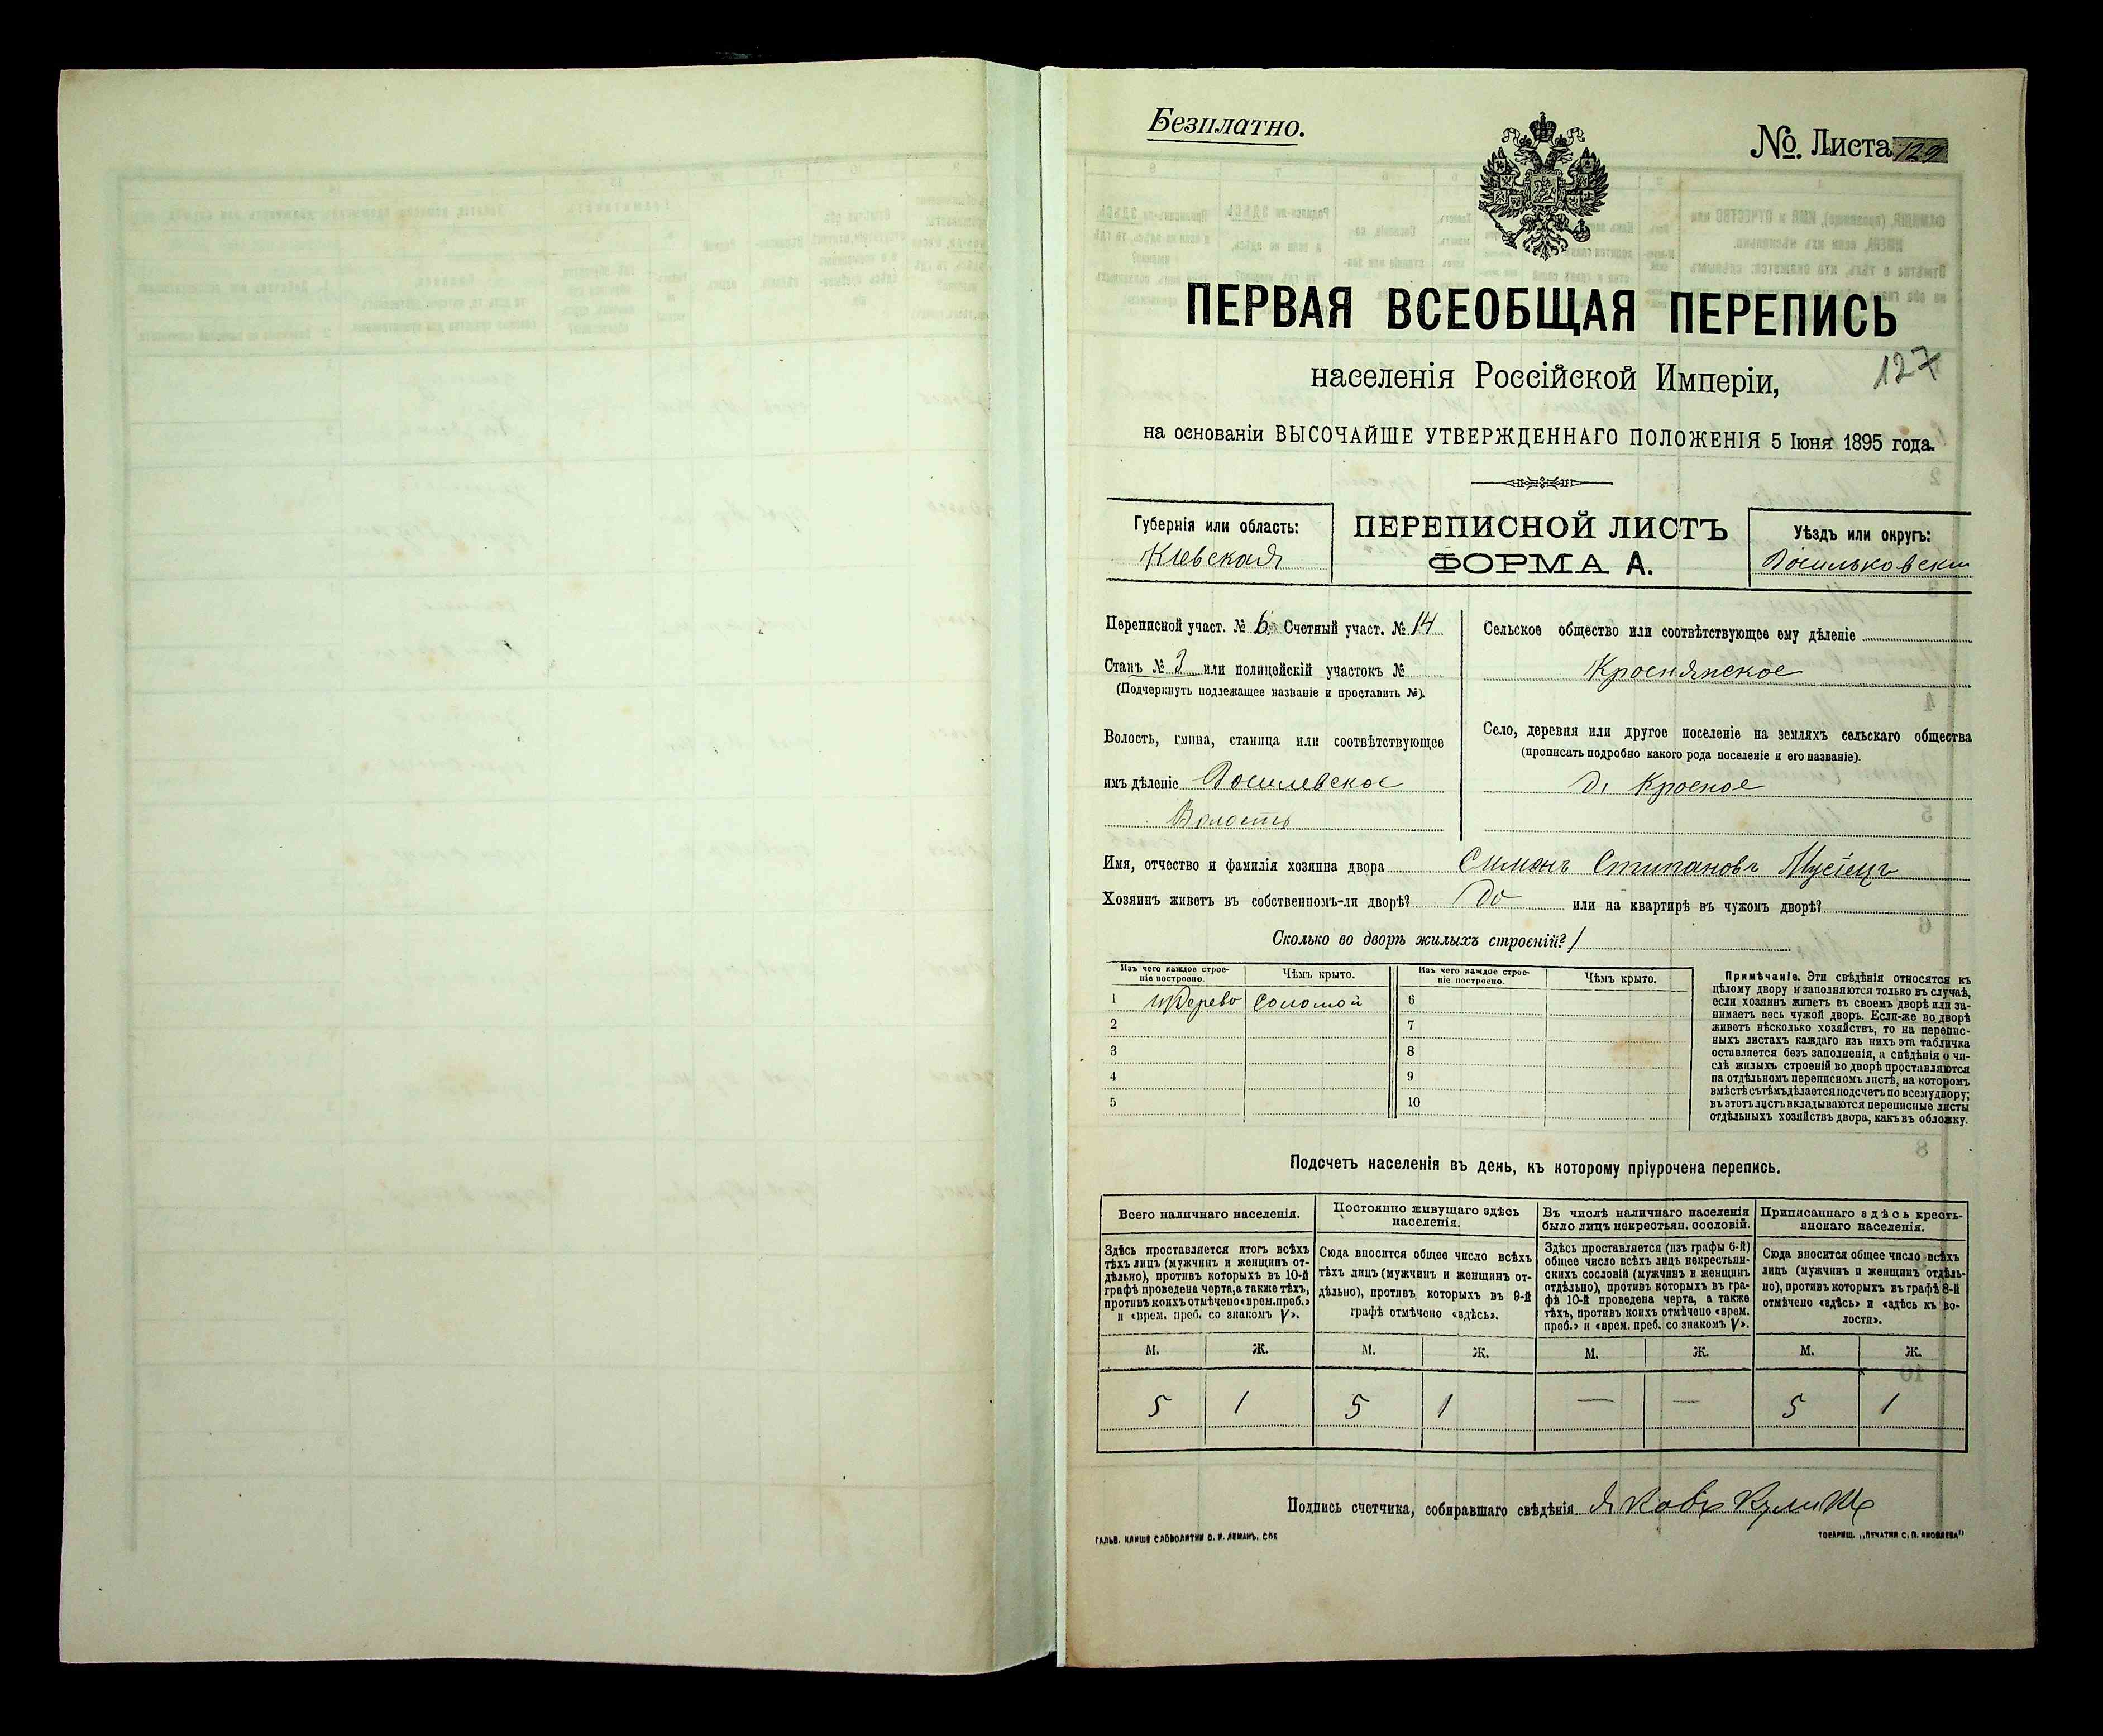 Безплатно.
№. Листа 129
ПЕРВАЯ ВСЕОБЩАЯ ПЕРЕПИСЬ
населенія Россійской Имперіи,
127
на основаніи ВЫСОЧАЙШЕ УТВЕРЖДЕННАГО ПОЛОЖЕНІЯ 5 Іюня 1895 года.
Губернія или область:
Кіевская
ПЕРЕПИСНОЙ ЛИСТЪ
ФОРМА А.
Уѣздъ или округъ:
Васильковски
Переписной участ. № 6. Счетный участ. № 14
Станъ № 3 или полицейскій участокъ №
(Подчеркнуть подлежащее названіе и проставить №).
Волость, гмина, станица или соотвѣтствующее
имъ дѣленіе Василевское
Волость
Сельское общество или соотвѣтствующее ему дѣленіе
Краснянское
Село, деревня или другое поселеніе на земляхъ сельскаго общества
(прописать подробно какого рода поселеніе и его названіе).
д. Красное
Имя, отчество и фамилія хозяина двора Симонъ Стипановъ Мусіецъ
Хозяинъ живетъ въ собственномъ-ли дворѣ? Да или на квартирѣ въ чужомъ дворѣ?
Сколько во дворѣ жилыхъ строеній? 1
Изъ чего каждое строе-
ніе построено.
Чѣмъ крыто.
Изъ чего каждое строе-
ніе построено.
Чѣмъ крыто.
1 Дерево Соломой
2
3
4
5
6
7
8
9
10
Примѣчаніе. Эти свѣдѣнія относятся къ
цѣлому двору и заполняются только въ случаѣ,
если хозяинъ живетъ въ своемъ дворѣ или за-
нимаетъ весь чужой дворъ. Если-же во дворѣ
живетъ нѣсколько хозяйствъ, то на перепис-
ныхъ листахъ каждаго изъ нихъ эта табличка
оставляется безъ заполненія, а свѣдѣнія о чи-
слѣ жилыхъ строеній во дворѣ проставляются
на отдѣльномъ переписномъ листѣ, на которомъ
вмѣстѣ съ тѣмъ дѣлается подсчетъ по всему двору;
въ этотъ листъ вкладываются переписные листы
отдѣльныхъ хозяйствъ двора, какъ въ обложку.
Подсчетъ населенія въ день, къ которому пріурочена перепись.
Всего наличнаго населенія.
Здѣсь проставляется итогъ всѣхъ
тѣхъ лицъ (мужчинъ и женщинъ от-
дѣльно), противъ которыхъ въ 10-й
графѣ проведена черта, а также тѣхъ,
противъ коихъ отмѣчено «врем. преб.»
и «врем. преб. со знакомъ V».
Постоянно живущаго здѣсь
населенія.
Сюда вносится общее число всѣхъ
тѣхъ лицъ (мужчинъ и женщинъ от-
дѣльно), противъ которыхъ въ 9-й
графѣ отмѣчено «здѣсь».
Въ числѣ наличнаго населенія
было лицъ некрестьян. сословій.
Здѣсь проставляется (изъ графы 6-й)
общее число всѣхъ лицъ некрестьян-
скихъ сословій (мужчинъ и женщинъ
отдѣльно), противъ которыхъ въ гра-
фѣ 10-й проведена черта, а также
тѣхъ, противъ коихъ отмѣчено «врем.
преб.» и «врем. преб. со знакомъ V».
Приписаннаго здѣсь кресть-
янскаго населенія.
Сюда вносится общее число всѣхъ
лицъ (мужчинъ и женщинъ отдѣль-
но), противъ которыхъ въ графѣ 8-й
отмѣчено «здѣсь» и «здѣсь къ во-
лости».
М. Ж. М. Ж. М. Ж. М. Ж.
5 1 5 1 — — 5 1
Подпись счетчика, собиравшаго свѣдѣнія Яковъ
ГАЛЬВ. КЛИШЕ СЛОВОЛИТНИ О. И. ЛЕМАНЪ, СПБ
ТОВАРИЩ. „ПЕЧАТНЯ С. П. ЯКОВЛЕВА"